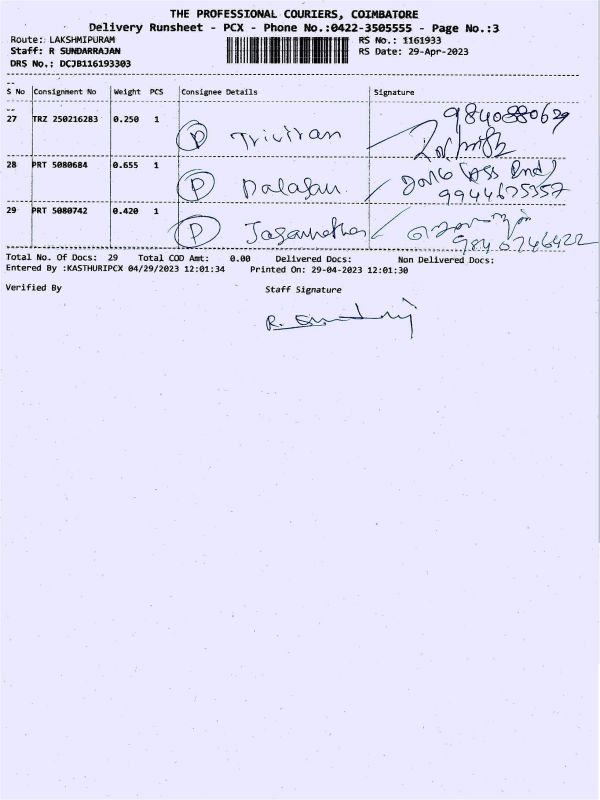 THE PROFESSIONAL COURIERS, COIMBATORE
Delivery Runsheet - PCX - Phone No.:0422-3505555 - Page No.:3
Route: LAKSHMIPURAM RS No.: 1161933
Staff: R SUNDARRAJAN RS Date: 29-Apr-2023
DRS No.: DCJB116193303
S No Consignment No Weight PCS Consignee Details Signature
27 TRZ 250216283 0.250 1 P 9840880629
28 PRT 5080684 0.655 1 P 9944675357
29 PRT 5080742 0.420 1 P 9840746422
Total No. Of Docs: 29 Total COD Amt: 0.00 Delivered Docs: Non Delivered Docs:
Entered By :KASTHURIPCX 04/29/2023 12:01:34 Printed On: 29-04-2023 12:01:30
Verified By Staff Signature